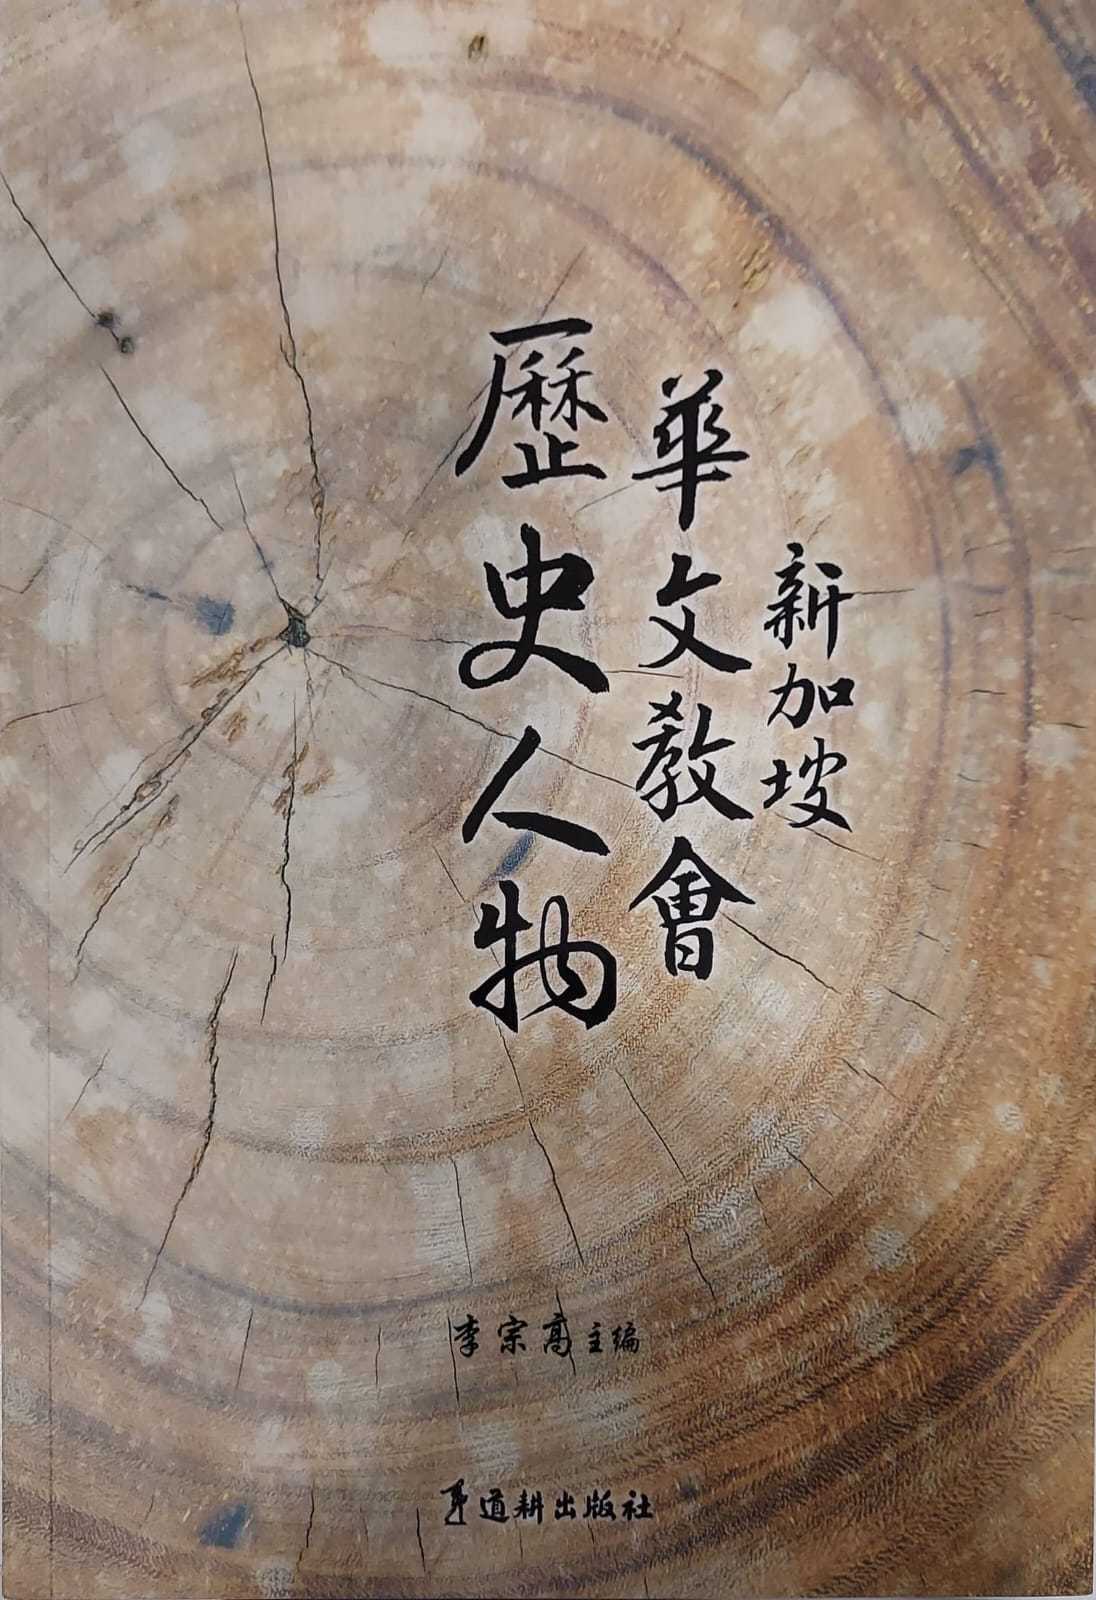 新加坡
華文教會
歷史人物
李宗高主编
道耕出版社